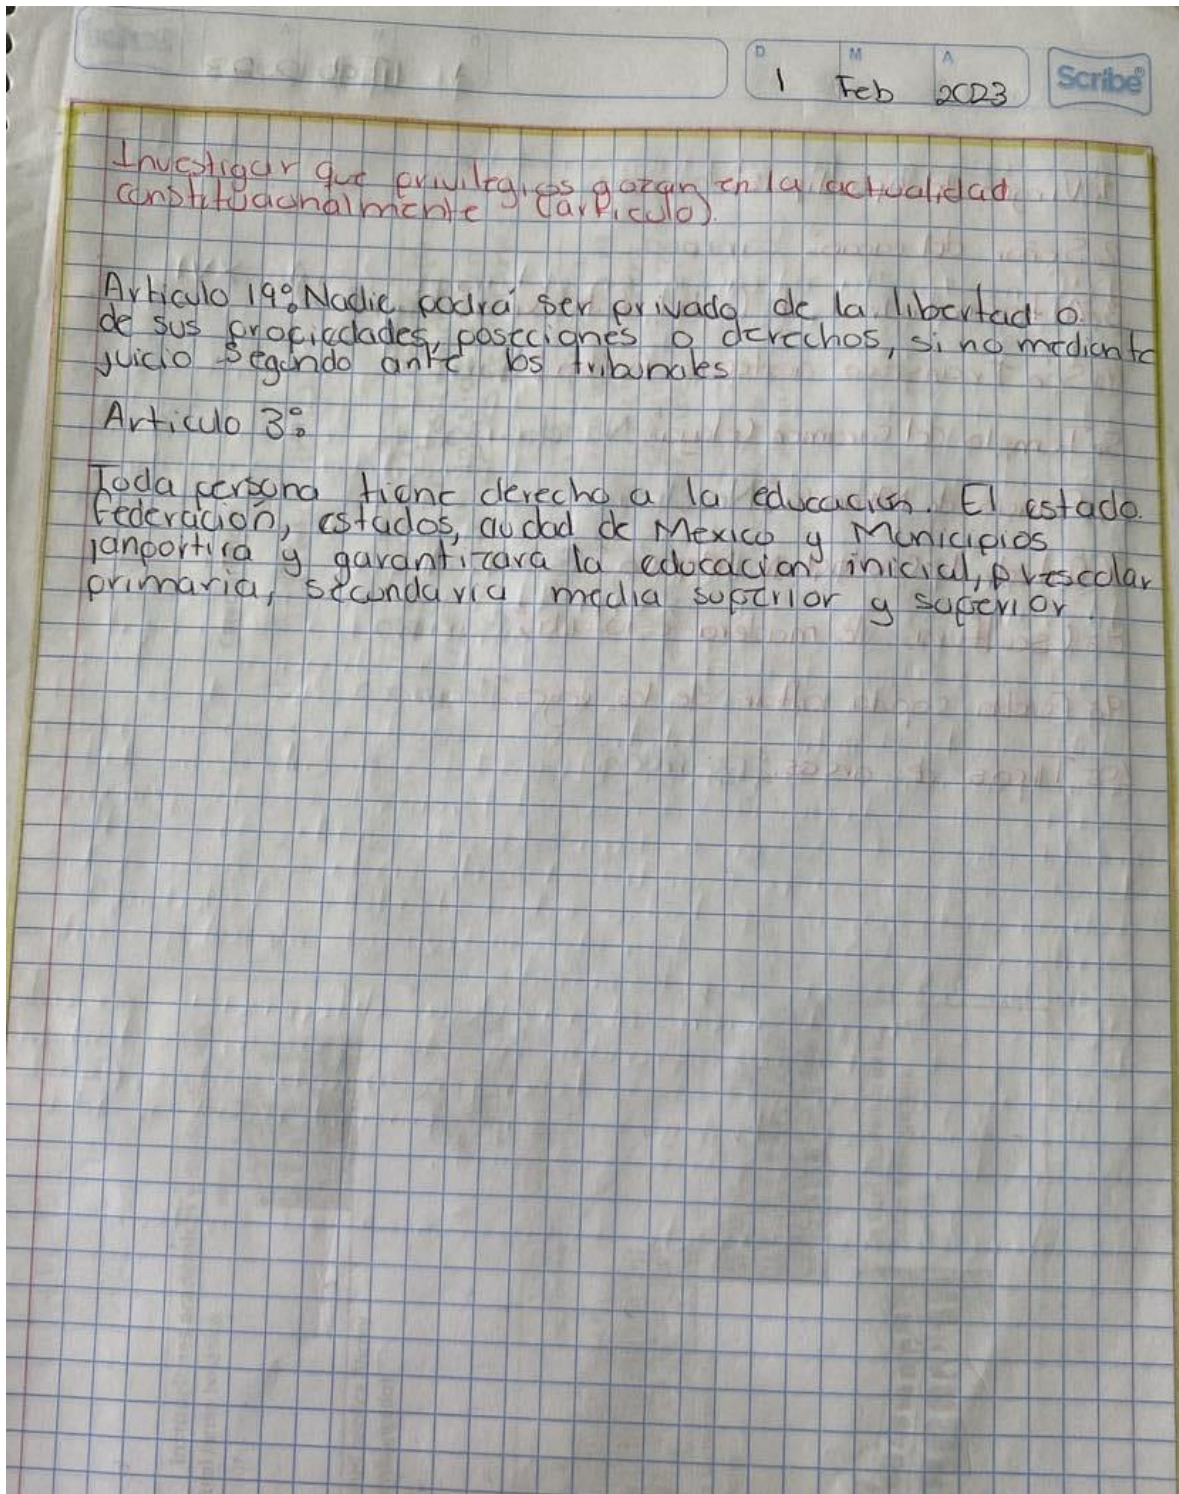 D M A
1 Feb 2023
Scribe
Investigar que privilegios gozan en la actualidad
constitucionalmente (articulo).
Articulo 19: Nadie podrá ser privado de la libertad o
de sus propiedades, posecciones o derechos, si no mediante
juicio segundo ante los tribunales
Articulo 3:
Toda persona tiene derecho a la educación. El estado
Federación, estados, ciudad de Mexico y Municipios
y garantizara la educacion inicial, prescolar
primaria, secundaria media superior y superior.